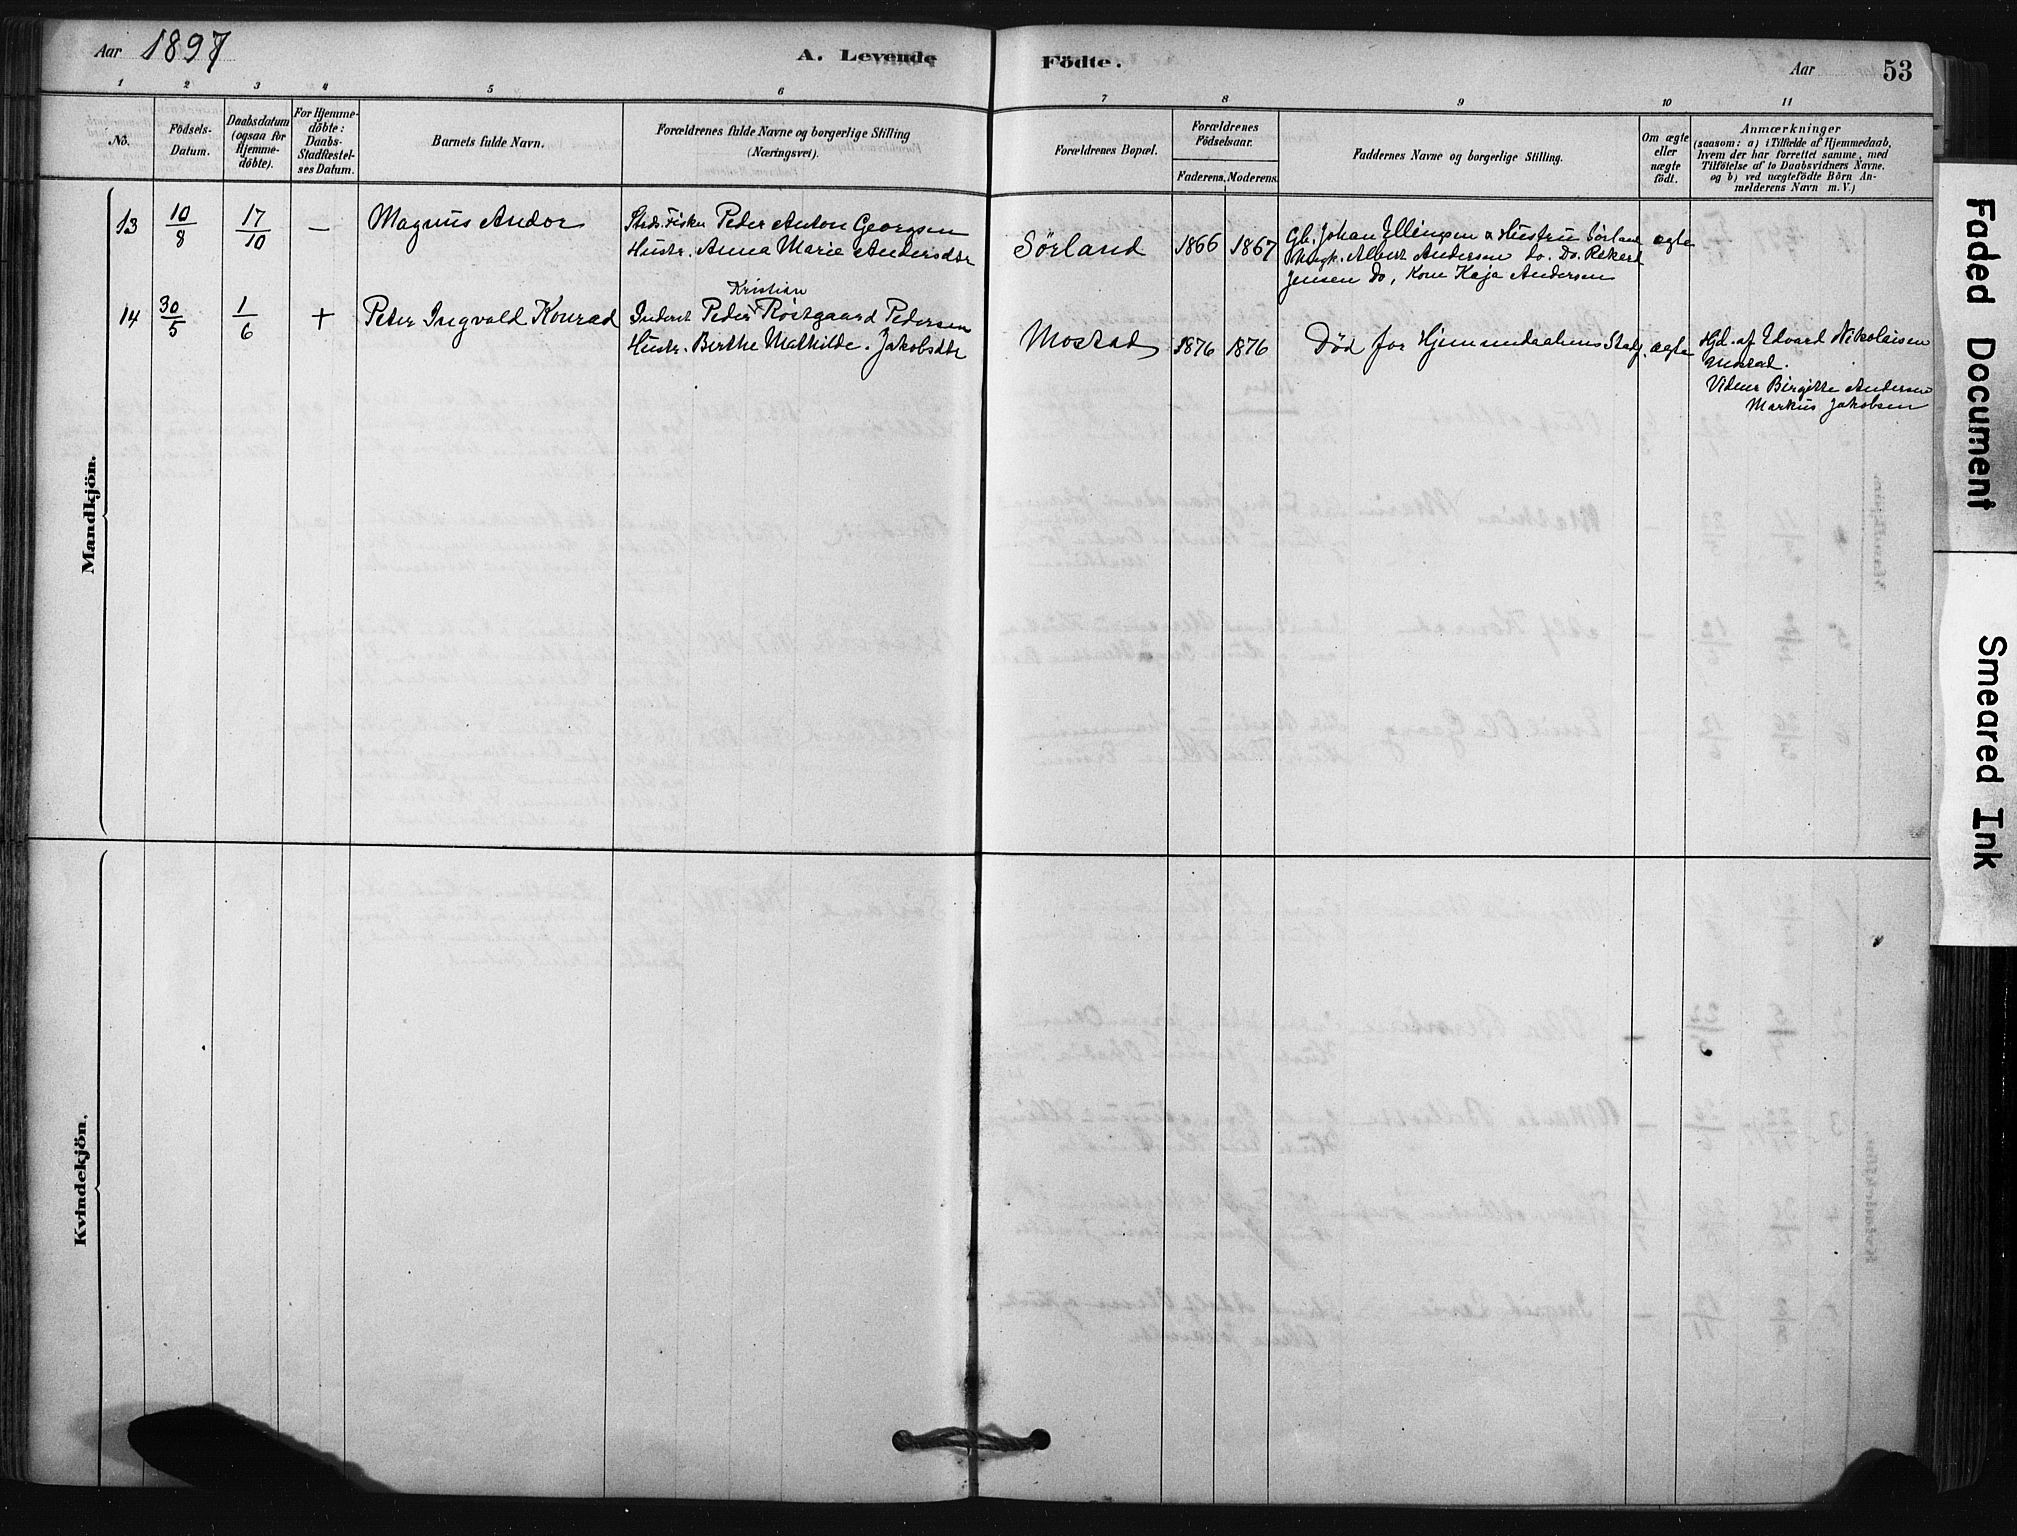 Aar 1897 A. Levende Födte. Aar 53
1 2 3 4 5 6 7 8 9 10 11
No.
Födsels-
Datum.
Daabsdatum
(ogsaa for
Hjemme-
döbte).
For Hjemme-
döbte:
Daabs-
Stadfæstel-
ses Datum.
Barnets fulde Navn.
Forældrenes fulde Navne og borgerlige Stilling
(Næringsvei).
Forældrenes Bopæl.
Forældrenes
Födselsaar.
Faderens. Moderens.
Faddernes Navne og borgerlige Stilling.
Om ægte
eller
uægte
födt.
Anmærkninger
(saasom: a) i Tilfælde af Hjemmedaab,
hvem der har forrettet samme, med
Tilföielse af to Daabsvidners Navne.
og b) ved uægtefödte Börn An-
melderens Navn m. V.)
Mandkjön.
13 10/8 17/10 — Magnus Andor
Peder Anton Georgsen
Hustr. Anna Marie Andersdtr
Sörland 1866 1867
Gb. Johan Ellingsen & Hustru Sörland
Albert Andersen Do. Do. Rekert
Jensen Do, Kone Kaja Andersen
ægte
14 30/5 1/6 + Peter Ingvald Konrad
Kristian
Inderst Peder Röstgaard Pedersen
Hustr. Berthe Mathilde Jakobsdtr
Mostad 1876 1876
Död för Hjemmedaabens Stadf. ægte
Hjd. af Edvard Nikolaisen
Mostad.
Vidner Birgitte Andersen
Markus Jakobsen
Kvindekjön.
Faded Document
Smeared Ink